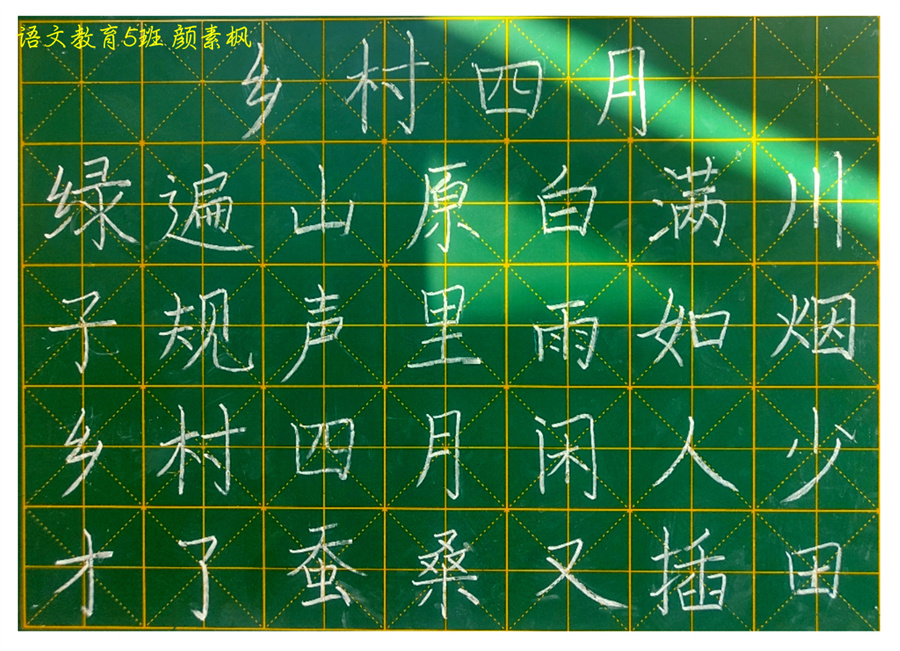 语文教育5班 颜素枫
乡村四月
绿遍山原白满川
子规声里雨如烟
乡村四月闲人少
才了蚕桑又插田